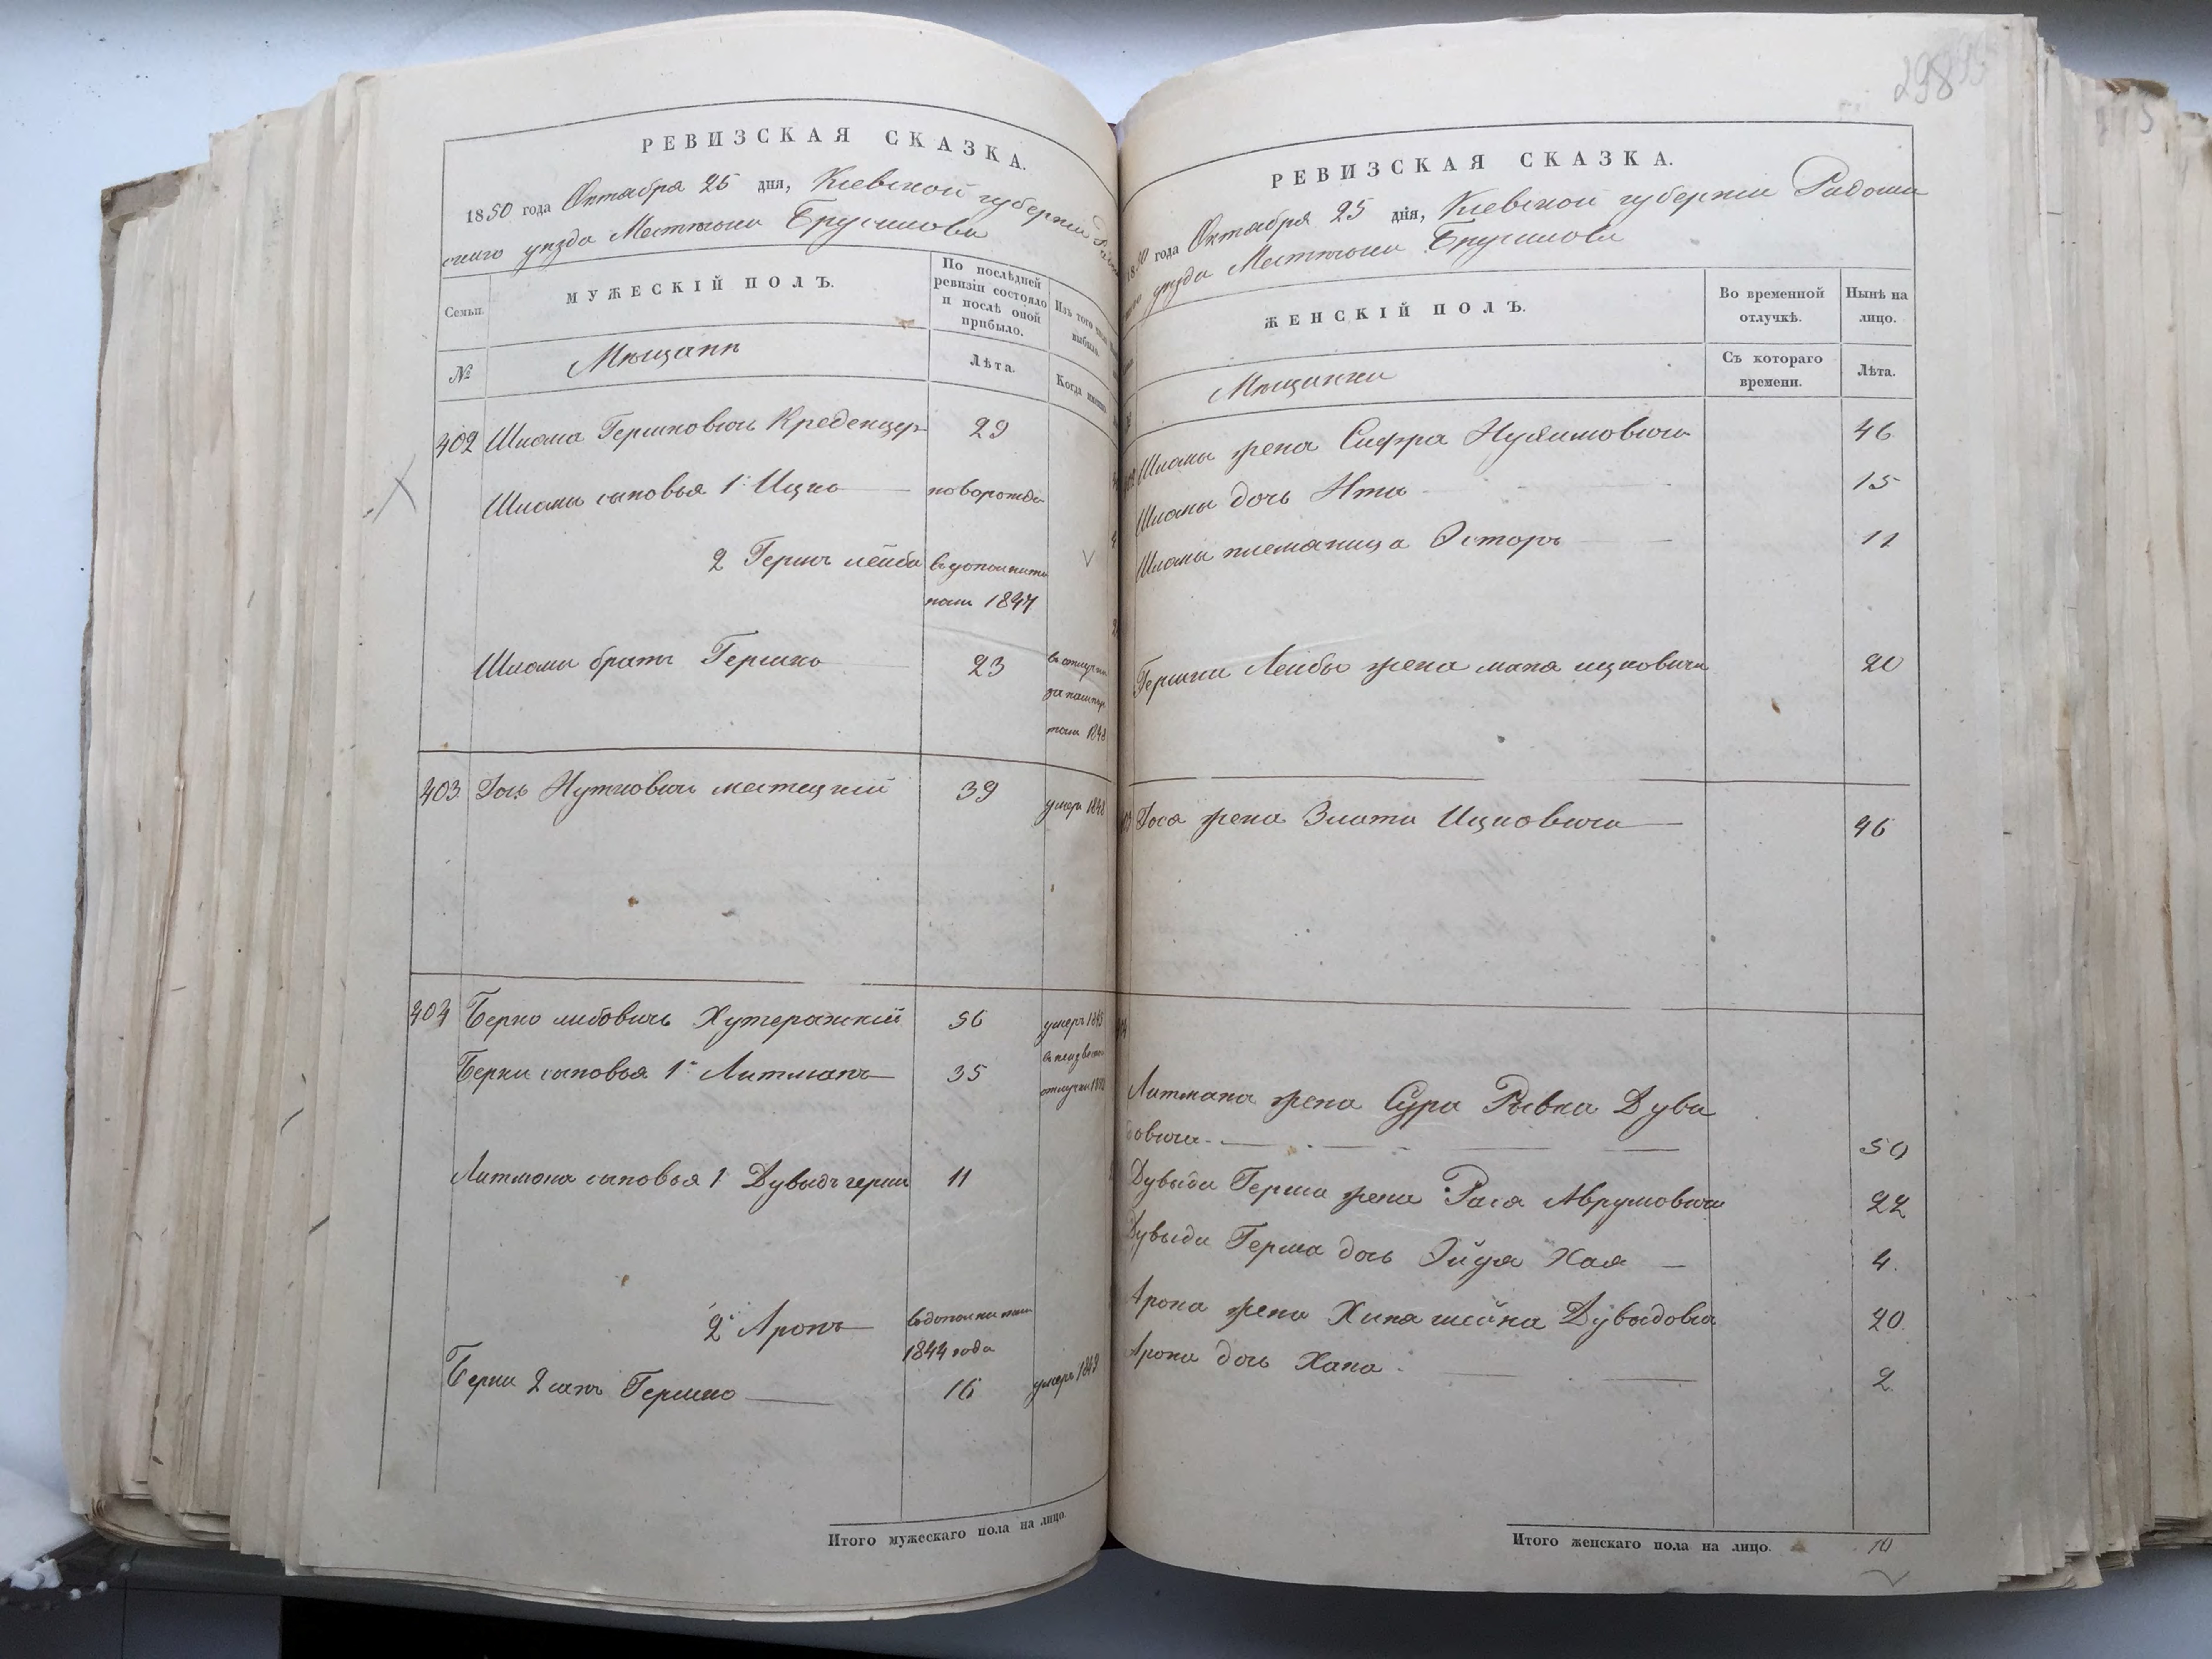 РЕВИЗСКАЯ СКАЗКА.
1850 года Октября 25 дня, Киевской губерніи
скаго уѣзда Местечка Брусилова
Семьи.
МУЖЕСКІЙ ПОЛЪ.
По послѣдней
ревизіи состояло
и послѣ оной
прибыло.
Изъ того числа
выбыло.
№
Мѣщанѣ
Лѣта.
Когда именно
402 Шлома Гершковичъ Креденцер 29
Шломы сыновья 1. Ицко новорожде
2 Гершъ лейба в дополните
1847
Шломы братъ Гершко 23 в отлучки
1848
403 Гось Нутковичъ местецкий 39 умеръ 1848
404 Берко либовичъ Хутеранский 56 умеръ 1845
Берки сыновья 1. Литманъ 35
отлучки
Литмана сыновья 1 Дувыдъ герш 11
2. Аронъ
1844 года
Берки 2 сынъ Гершко 16 умеръ 1849
Итого мужескаго пола на лицо.
298
РЕВИЗСКАЯ СКАЗКА.
1850 года Октября 25 дня, Киевской губерніи Радомы
уѣзда Местечка Брусилова
ЖЕНСКІЙ ПОЛЪ.
Во временной
отлучкѣ.
Нынѣ на
лицо.
Мѣщанки
Съ котораго
времени.
Лѣта.
Шломы жена Сифра Нухимовича 46
Шломы дочь Ита 15
Шломы племяница Эстеръ 11
Гершки Лейбы жена ицковича 20
Гося жена Злата Ицковича 46
Литмана жена Сура Рывка Дувы
довича 50
Дувыда Герша жена Рася Аврумовича 22
Дувыда Герша дочь Хая 4.
Арона жена Дувыдова 20
Арона дочь Хана 2
Итого женскаго пола на лицо. 10